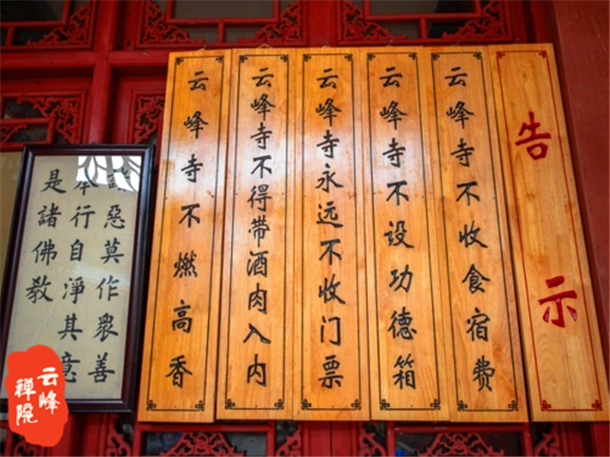 告示
云峰寺不收食宿费
云峰寺不设功德箱
云峰寺永远不收门票
云峰寺不得带酒肉入内
云峰寺不燃高香
惡莫作眾善
奉行自淨其意
是諸佛教
云峰
禅院